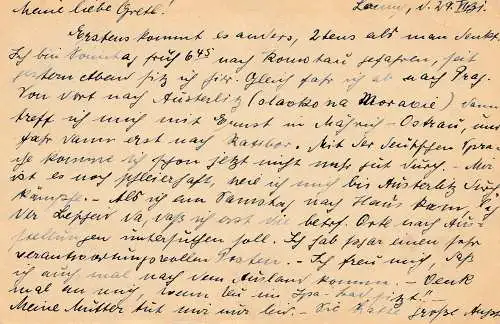 Meine liebe Gretl! Laun, d. 24. VI. 31.
Erstens kommt es anders, 2tens als man denkt.
Ich bin Sonntag, früh 6 45 nach Komotau gefahren, seit
gestern Abend sitz ich hier. Gleich fahr ich ab nach Prag.
Von dort nach Austerlitz (slavkov na Moravié) dann
treff ich mich mit Ernst in Mährisch-Ostrau, und
fahr dann erst nach Ratibor. Mit der deutschen Spra-
che komme ich schon jetzt nicht mehr gut durch. - Mir
ist es noch schleierhaft, weil ich mich bis Austerlitz durch
kämpfe. - Als ich am Samstag nach Haus kam,
Der da, daß ich erst die betrf. Orte nach Aus-
stellungen untersuchen soll. Ich hab sogar einen sehr
verantwortungsvollen Posten. - Ich freu mich, daß
ich auch mal nach dem Ausland komme. - Denk
mal an mich, wenn Du im sitzt! -
Meine Mutter tut mir nur leid. - Die hatte große Angst